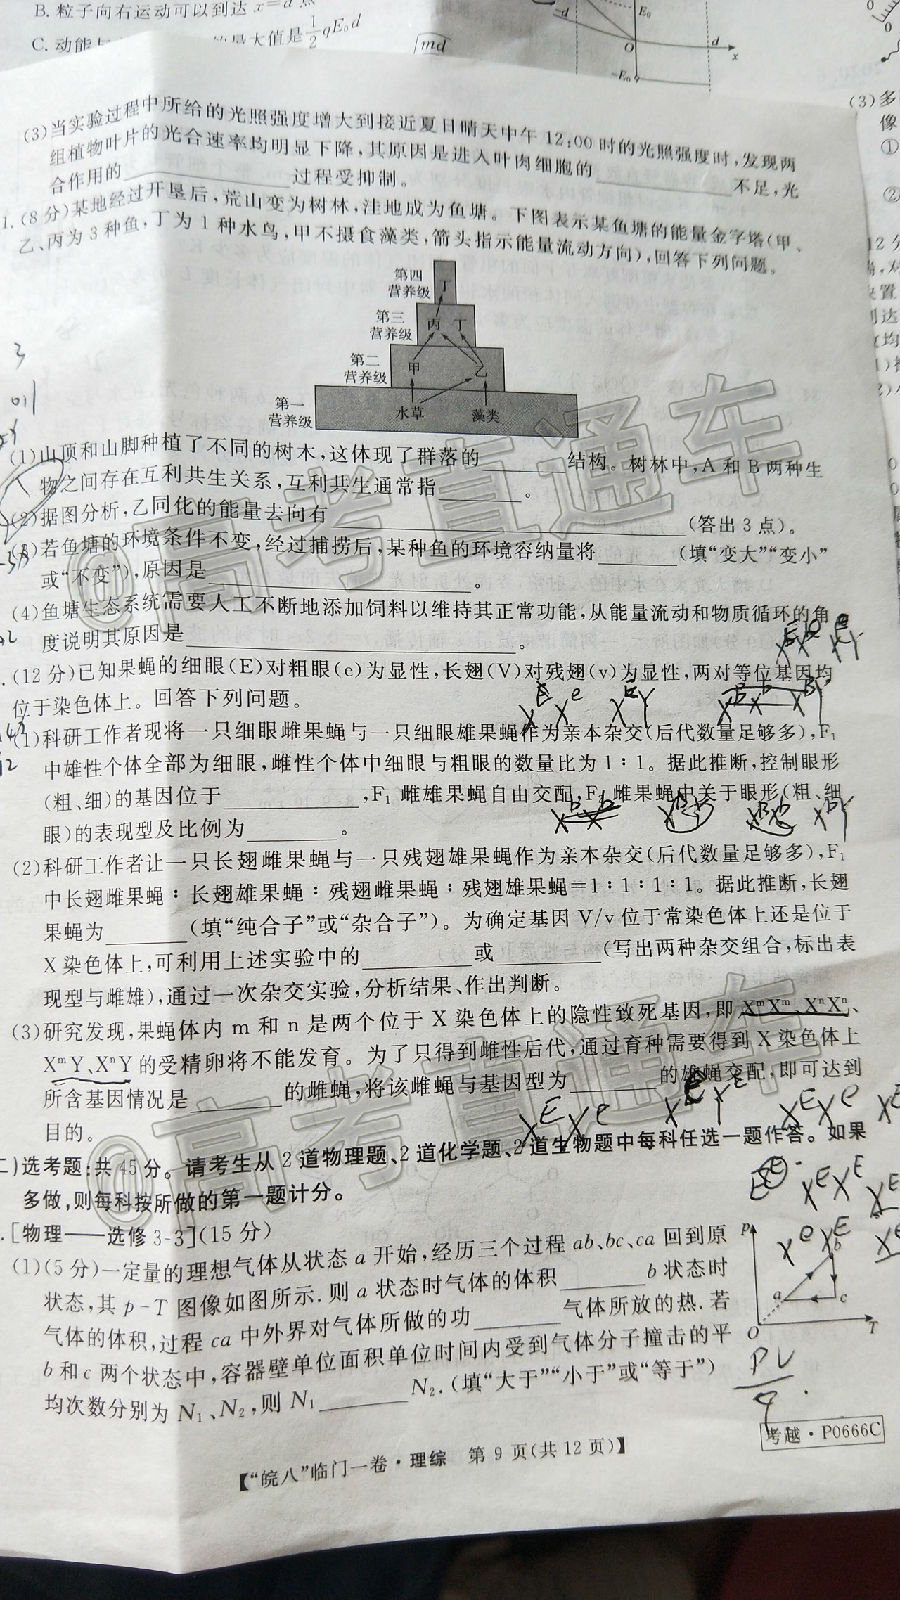 B. 粒子向右运动可以到达 x=d 点
C. 动能与 的最大值是 1/2 qE₀d
(3)当实验过程中所给的光照强度增大到接近夏日晴天中午 12:00 时的光照强度时,发现两
组植物叶片的光合速率均明显下降,其原因是进入叶肉细胞的____不足,光
合作用的____过程受抑制。
1.(8 分)某地经过开垦后,荒山变为树林,洼地成为鱼塘。下图表示某鱼塘的能量金字塔(甲、
乙、丙为 3 种鱼,丁为 1 种水鸟,甲不摄食藻类,箭头指示能量流动方向),回答下列问题。
第四
营养级 丁
第三
营养级 丙 丁
第二
营养级 甲 乙
第一
营养级 水草 藻类
(1)山顶和山脚种植了不同的树木,这体现了群落的____结构。树林中,A 和 B 两种生
物之间存在互利共生关系,互利共生通常指____。
(2)据图分析,乙同化的能量去向有____(答出 3 点)。
(3)若鱼塘的环境条件不变,经过捕捞后,某种鱼的环境容纳量将____(填“变大”“变小”
或“不变”),原因是____。
(4)鱼塘生态系统需要人工不断地添加饲料以维持其正常功能,从能量流动和物质循环的角
度说明其原因是____。
.(12 分)已知果蝇的细眼(E)对粗眼(e)为显性,长翅(V)对残翅(v)为显性,两对等位基因均
位于染色体上。回答下列问题。
(1)科研工作者现将一只细眼雌果蝇与一只细眼雄果蝇作为亲本杂交(后代数量足够多),F₁
中雄性个体全部为细眼,雌性个体中细眼与粗眼的数量比为 1∶1。据此推断,控制眼形
(粗、细)的基因位于____,F₁ 雌雄果蝇自由交配,F₂ 雌果蝇中关于眼形(粗、细
眼)的表现型及比例为____。
(2)科研工作者让一只长翅雌果蝇与一只残翅雄果蝇作为亲本杂交(后代数量足够多),F₁
中长翅雌果蝇∶长翅雄果蝇∶残翅雌果蝇∶残翅雄果蝇=1∶1∶1∶1。据此推断,长翅
果蝇为____(填“纯合子”或“杂合子”)。为确定基因 V/v 位于常染色体上还是位于
X 染色体上,可利用上述实验中的____或____(写出两种杂交组合,标出表
现型与雌雄),通过一次杂交实验,分析结果、作出判断。
(3)研究发现,果蝇体内 m 和 n 是两个位于 X 染色体上的隐性致死基因,即 XᵐXᵐ、XⁿXⁿ、
XᵐY、XⁿY 的受精卵将不能发育。为了只得到雌性后代,通过育种需要得到 X 染色体上
所含基因情况是____的雌蝇,将该雌蝇与基因型为____的雄蝇交配,即可达到
目的。
二)选考题:共 45 分。请考生从 2 道物理题、2 道化学题、2 道生物题中每科任选一题作答。如果
多做,则每科按所做的第一题计分。
.[物理——选修 3-3](15 分)
(1)(5 分)一定量的理想气体从状态 a 开始,经历三个过程 ab、bc、ca 回到原
状态,其 p-T 图像如图所示. 则 a 状态时气体的体积____b 状态时
气体的体积,过程 ca 中外界对气体所做的功____气体所放的热. 若
b 和 c 两个状态中,容器壁单位面积单位时间内受到气体分子撞击的平
均次数分别为 N₁、N₂,则 N₁____N₂.(填“大于”“小于”或“等于”)
p
b
a
c
O
T
考越·P0666C
【“皖八”临门一卷·理综 第 9 页(共 12 页)】
@高考直通车
@高考直通车